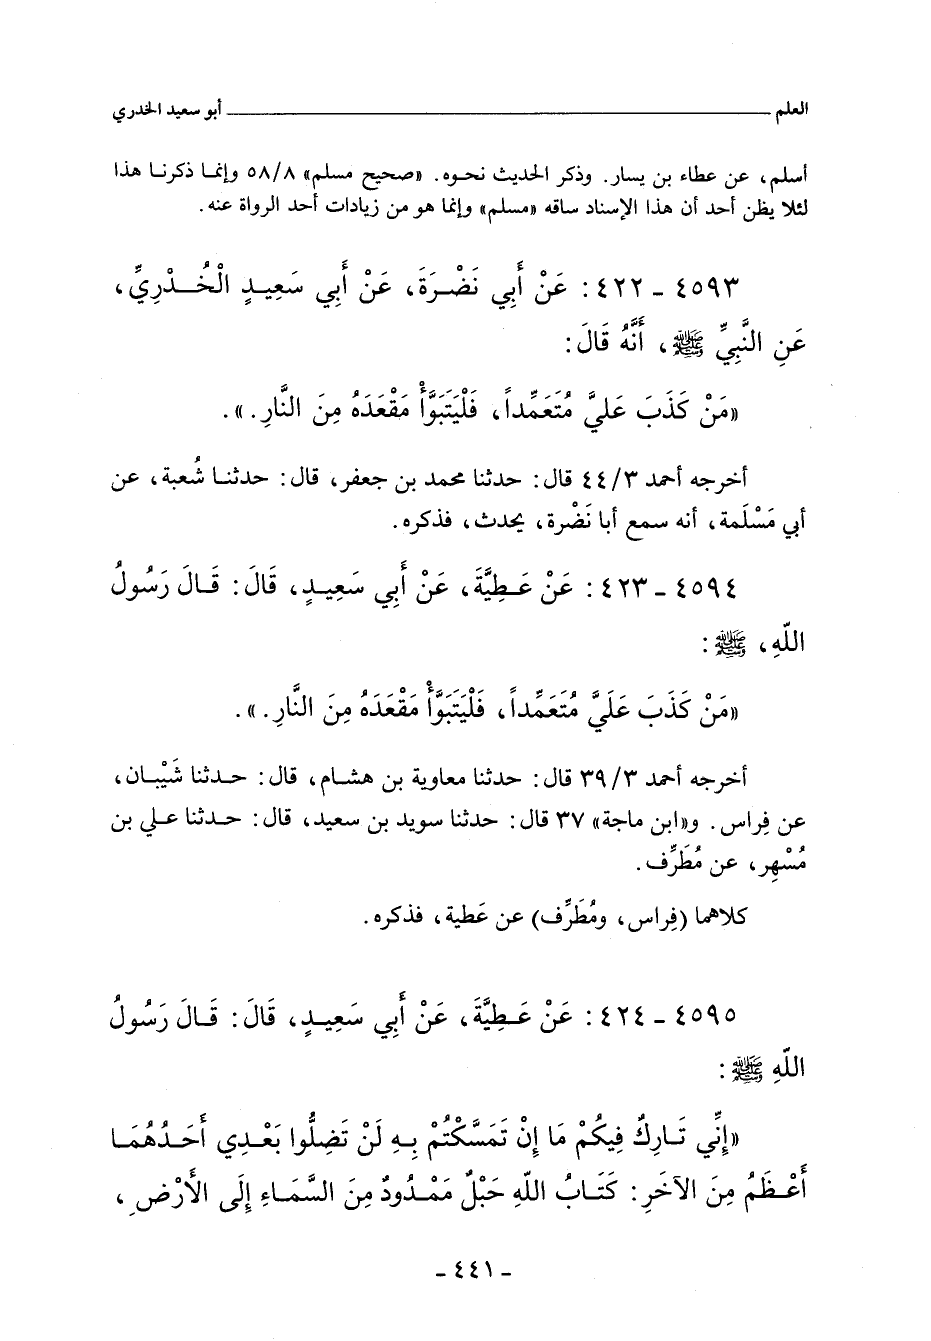 العلم ـــــــ أبو سعيد الخدري
أسلم، عن عطاء بن يسار. وذكر الحديث نحوه. «صحيح مسلم» ٥٨/٨ وإنما ذكرنا هذا
لئلا يظن أحد أن هذا الإسناد ساقه «مسلم» وإنما هو من زيادات أحد الرواة عنه.
٤٥٩٣ ـ ٤٢٢: عَنْ أَبِي نَضْرَةَ، عَنْ أَبِي سَعِيدٍ الْخُدْرِيِّ،
عَنِ النَّبِيِّ ﷺ، أَنَّهُ قَالَ:
«مَنْ كَذَبَ عَلَيَّ مُتَعَمِّداً، فَلْيَتَبَوَّأْ مَقْعَدَهُ مِنَ النَّارِ.».
أخرجه أحمد ٤٤/٣ قال: حدثنا محمد بن جعفر، قال: حدثنا شُعبة، عن
أبي مَسْلَمة، أنه سمع أبا نَضْرة، يحدث، فذكره.
٤٥٩٤ ـ ٤٢٣: عَنْ عَطِيَّةَ، عَنْ أَبِي سَعِيدٍ، قَالَ: قَالَ رَسُولُ
اللّهِ، ﷺ:
«مَنْ كَذَبَ عَلَيَّ مُتَعَمِّداً، فَلْيَتَبَوَّأْ مَقْعَدَهُ مِنَ النَّارِ.».
أخرجه أحمد ٣٩/٣ قال: حدثنا معاوية بن هشام، قال: حدثنا شَيْبان،
عن فِراس. و«ابن ماجة» ٣٧ قال: حدثنا سويد بن سعيد، قال: حدثنا علي بن
مُسْهِر، عن مُطَرِّف.
كلاهما (فِراس، ومُطَرِّف) عن عَطية، فذكره.
٤٥٩٥ ـ ٤٢٤: عَنْ عَطِيَّةَ، عَنْ أَبِي سَعِيدٍ، قَالَ: قَالَ رَسُولُ
اللّهِ ﷺ:
«إِنِّي تَارِكٌ فِيكُمْ مَا إِنْ تَمَسَّكْتُمْ بِهِ لَنْ تَضِلُّوا بَعْدِي أَحَدُهُمَا
أَعْظَمُ مِنَ الآخَرِ: كَتَابُ اللّهِ حَبْلٌ مَمْدُودٌ مِنَ السَّمَاءِ إِلَى الأَرْضِ،
ـ ٤٤١ ـ